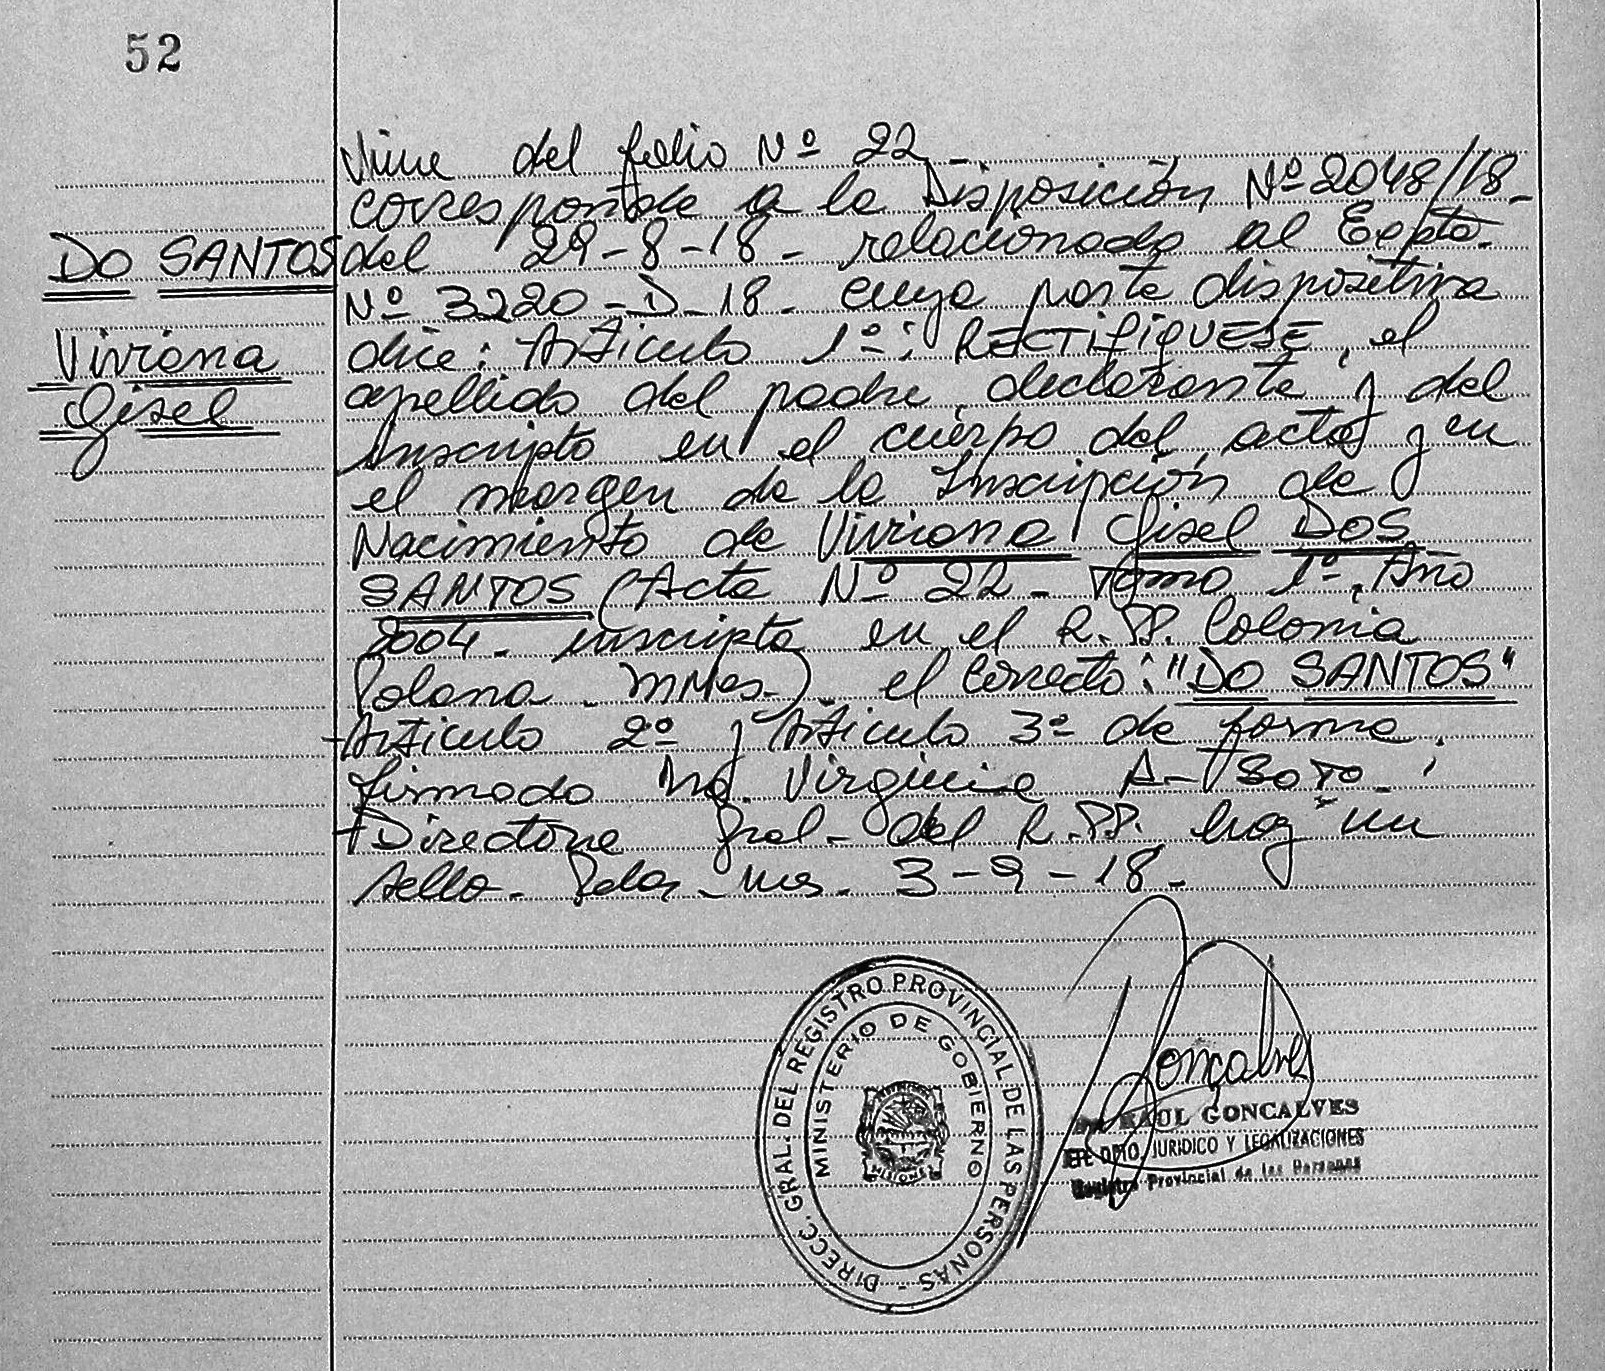 52
DO SANTOS
Viviana
Gisel
Viene del folio Nº 22 -
corresponde a la Disposición Nº 2048/18 -
del 29-8-18 - relacionado al Expte.
Nº 3220-D-18 - cuya parte dispositiva
dice: Artículo 1º: RECTIFIQUESE, el
apellido del padre, declarante y del
inscripto en el cuerpo del acta y en
el margen de la Inscripción de
Nacimiento de Viviana Gisel DOS
SANTOS (Acta Nº 22 - Tomo 1º, Año
2004 - inscripta en el R.PP. Colonia
Polana - Mnes.) el correcto: "DO SANTOS"
Artículo 2º y Artículo 3º de forma.
firmado Virginia A- SOTO -
Directora Gral - del R.PP. hay un
sello - Pdas - Mns. 3-9-18 -
DIRECC. GRAL. DEL REGISTRO PROVINCIAL DE LAS PERSONAS -
MINISTERIO DE GOBIERNO
MISIONES
Goncalves
RAUL GONCALVES
JEFE DPTO. JURIDICO Y LEGALIZACIONES
Registro Provincial de las Personas